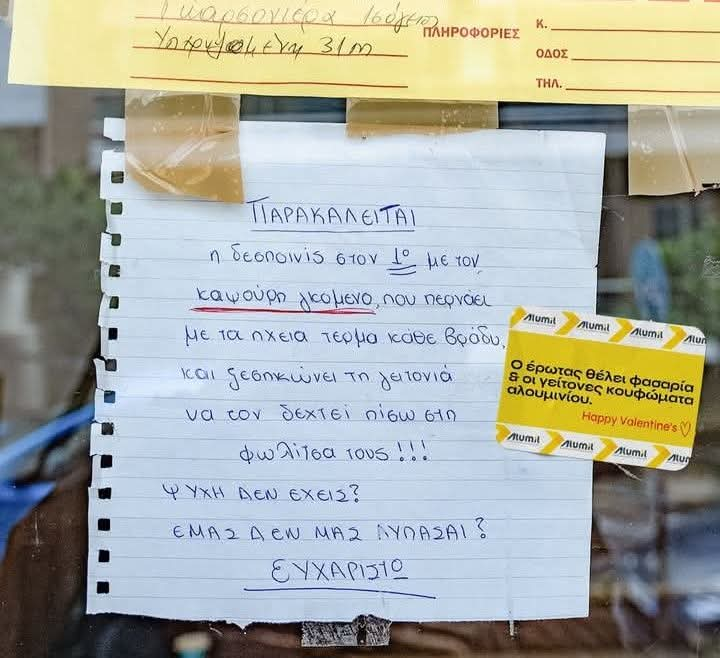 Γκαρσονιέρα Ισόγεια
Υπερυψωμένη 31m
ΠΛΗΡΟΦΟΡΙΕΣ
Κ.
ΟΔΟΣ
ΤΗΛ.
ΠΑΡΑΚΑΛΕΙΤΑΙ
η δεσποινίς στον 1ο με τον
καψούρη γκόμενο, που περνάει
με τα ηχεία τέρμα κάθε βράδυ,
και ξεσηκώνει τη γειτονιά
να τον δεχτεί πίσω στη
φωλίτσα τους!!!
ΨΥΧΗ ΔΕΝ ΕΧΕΙΣ?
ΕΜΑΣ ΔΕΝ ΜΑΣ ΛΥΠΑΣΑΙ?
ΕΥΧΑΡΙΣΤΩ
Alumil Alumil Alumil Alum
Ο έρωτας θέλει φασαρία
& οι γείτονες κουφώματα
αλουμινίου.
Happy Valentine's
Alumil Alumil Alumil Alum